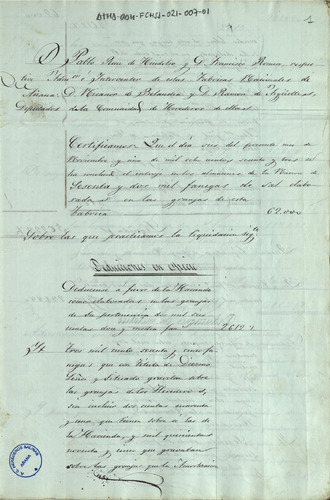 ATHA-DAH-FCHSA-021-007-01
1
D. Pablo Ruiz de y D. Francisco respec
tive Admor e Interventor de estas Fabricas Nacionales de
Añana: D. Nicanor de Belandia y D. Ramon de
Diputados de la Comunidad de Herederos de ellas.
Certificamos: Que el dia seis del presente mes de
Noviembre y año de mil ocho cientos sesenta y tres se
ha concluido el entroje en los almacenes de la misma de
Sesenta y dos mil fanegas de sal elabo
rada en las granjas de esta
Fabrica 62.000
Sobre las que practicamos la liquidacion sigte
Deduciones en especie
Deducense á favor de la Hacienda
como elaboradas en las granjas
de su pertenencia dos mil seis
cientas doce y media fans 2612 ½
Tres mil ciento sesenta y cinco fane
gas que con titulo de Diezmo
y gravitan sobre
las granjas de los Herederos,
sin incluir dos cientas cuarenta
y una, que tienen sobre si las de
la Hacienda, y mil quinientas
noventa y cinco que gravaban
sobre las granjas que la
AÑANA